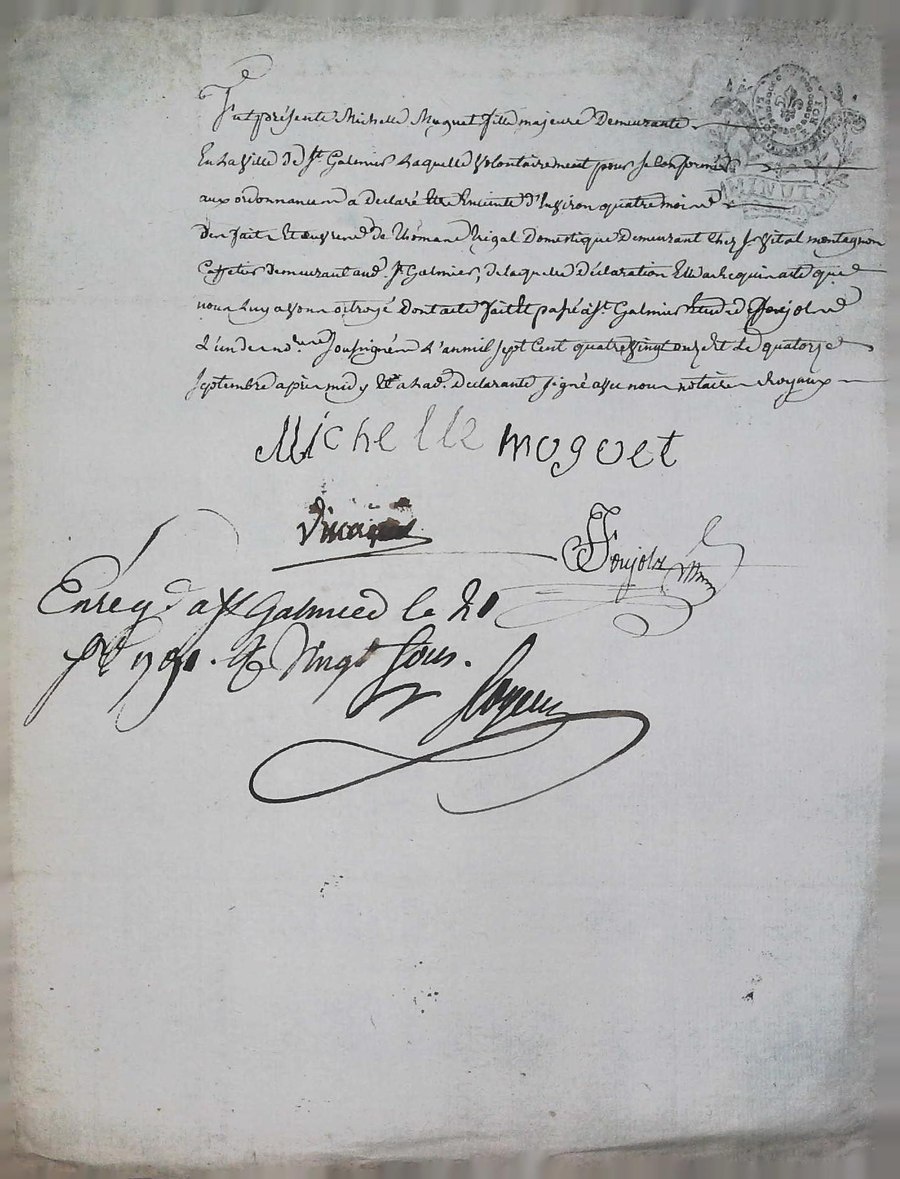 MINUT
Fut présente Michelle Moguet fille majeure Demeurante
En la ville de St Galmier Laquelle volontairement pour se conformer
aux ordonnances a declaré Etre Enceinte d'Environ quatre mois
Des faits Et œuvres de Thomas Rigal Domestique Demeurant chez Sr vital montagnon
Caffetier demeurant aud. St Galmier, de laquelle déclaration Elle a requis acte que
nous Luy avons octroyé Dont acte fait et passé a St. Galmier Etude de Ponjol
L'un des no.res Soussignés L'an mil sept Cent quatrevingt onze et Le quatorze
septembre après midy Et a lad. declarante signé avec nous notaires Royaux
Michelle moguet
Ponjol
Enreg a St Galmier le 21
1791. vingt sous.